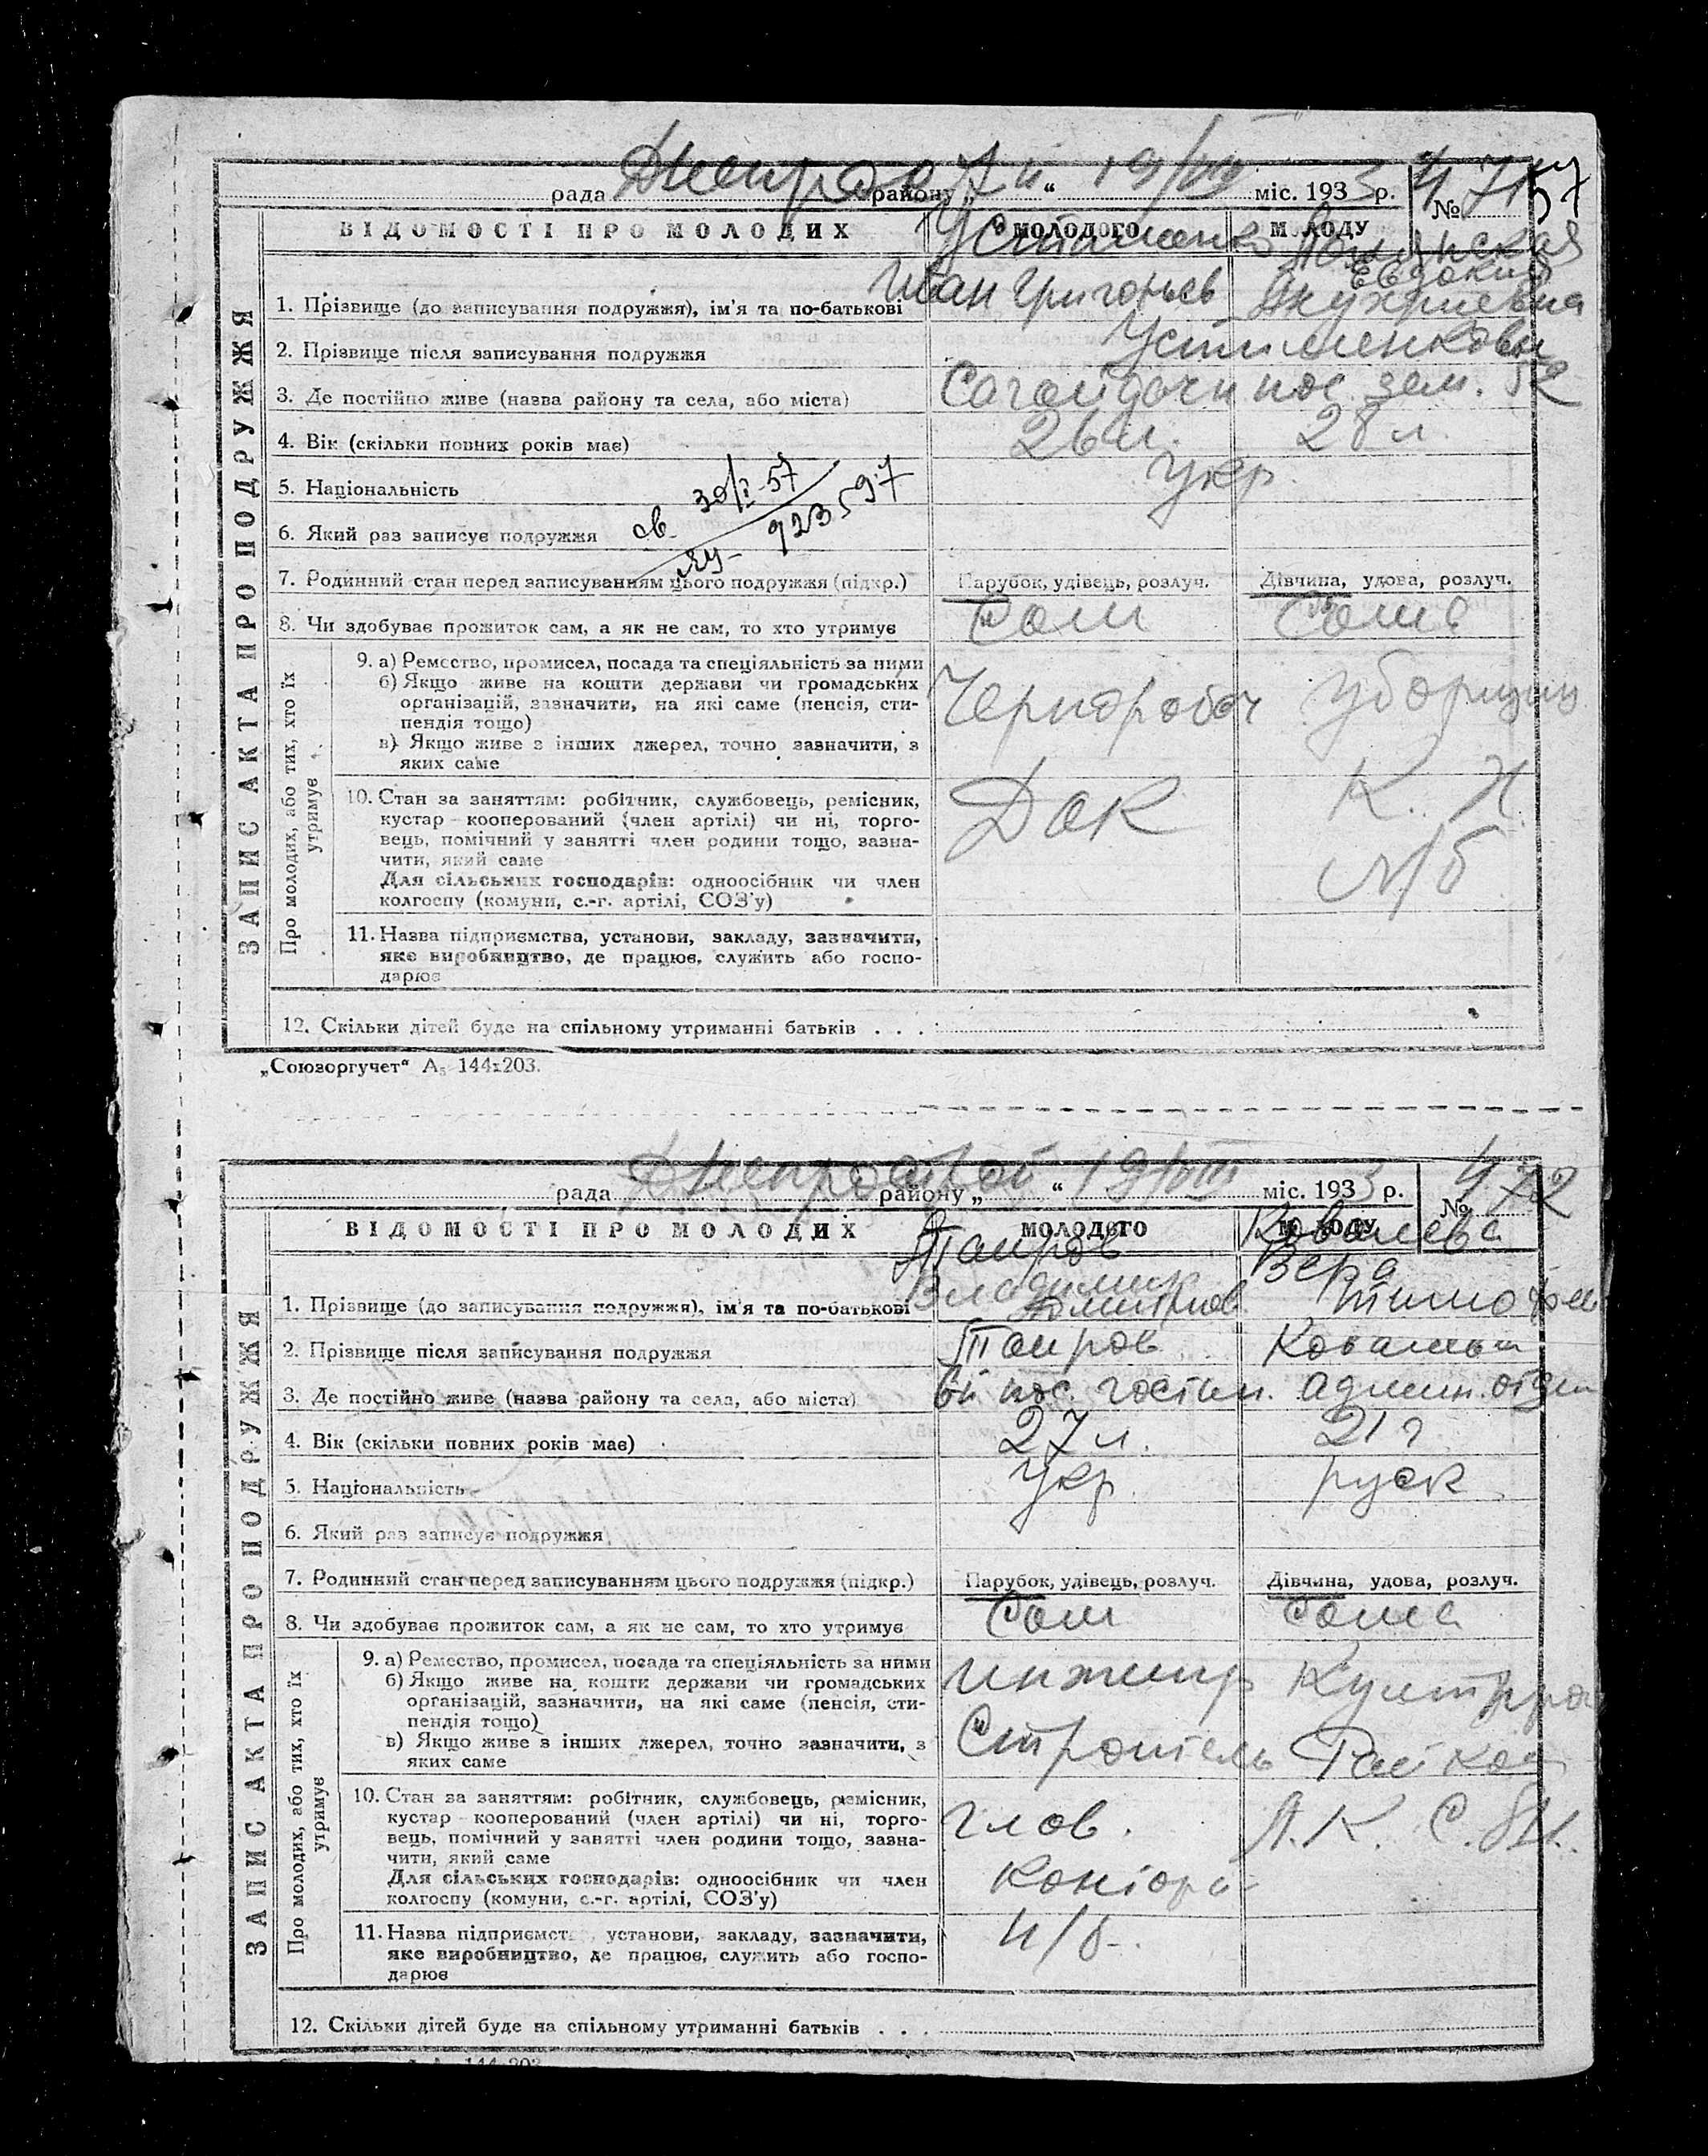 рада Днепрострой району „ “ 19/VIII міс. 1933 р. № 471
57
ВІДОМОСТІ ПРО МОЛОДИХ МОЛОДОГО МОЛОДУ
Устименко
Евдокия
Иван Григорьев
1. Прізвище (до записування подружжя), ім'я та по-батькові
2. Прізвище після записування подружжя
3. Де постійно живе (назва району та села, або міста) пос. зем.
4. Вік (скільки повних років має) 26 л. 28 л.
5. Національність Укр.
6. Який раз записує подружжя
св. 30/I-57
923597
7. Родинний стан перед записуванням цього подружжя (підкр.) Парубок, удівець, розлуч. Дівчина, удова, розлуч.
8. Чи здобуває прожиток сам, а як не сам, то хто утримує Сам Сама
ЗАПИС АКТА ПРО ПОДРУЖЖЯ
Про молодих, або тих, хто їх утримує
9. а) Ремество, промисел, посада та спеціяльність за ними
б) Якщо живе на кошти держави чи громадських
організацій, зазначити, на які саме (пенсія, сти-
пендія тощо)
в) Якщо живе з інших джерел, точно зазначити, з
яких саме
Чернороботч уборщиц
10. Стан за заняттям: робітник, службовець, ремісник,
кустар кооперований (член артілі) чи ні, торго-
вець, помічний у занятті член родини тощо, зазна-
чити, який саме
Для сільських господарів: одноосібник чи член
колгоспу (комуни, с.-г. артілі, СОЗ'у)
ДОК К. Х.
н/б
11. Назва підприємства, установи, закладу, зазначити,
яке виробництво, де працює, служить або госпо-
дарює
12. Скільки дітей буде на спільному утриманні батьків . . .
„Союзоргучет“ А₅ 144х203.
рада Днепрострой району „ “ 19/VIII міс. 1933 р. № 472
ВІДОМОСТІ ПРО МОЛОДИХ МОЛОДОГО МОЛОДУ
Таиров Ковалева
Владимир Вера
Дмитриев Тимофеев
1. Прізвище (до записування подружжя), ім'я та по-батькові
2. Прізвище після записування подружжя Таиров Ковалева
3. Де постійно живе (назва району та села, або міста) 6й пос. гостин. админ. отдел
4. Вік (скільки повних років має) 27 л. 21 г
5. Національність Укр. руск
6. Який раз записує подружжя
7. Родинний стан перед записуванням цього подружжя (підкр.) Парубок, удівець, розлуч. Дівчина, удова, розлуч.
8. Чи здобуває прожиток сам, а як не сам, то хто утримує Сам Сама
ЗАПИС АКТА ПРО ПОДРУЖЖЯ
Про молодих, або тих, хто їх утримує
9. а) Ремество, промисел, посада та спеціяльність за ними
б) Якщо живе на кошти держави чи громадських
організацій, зазначити, на які саме (пенсія, сти-
пендія тощо)
в) Якщо живе з інших джерел, точно зазначити, з
яких саме
инжинр
Строитель
10. Стан за заняттям: робітник, службовець, ремісник,
кустар кооперований (член артілі) чи ні, торго-
вець, помічний у занятті член родини тощо, зазна-
чити, який саме
Для сільських господарів: одноосібник чи член
колгоспу (комуни, с.-г. артілі, СОЗ'у)
глов.
контора
11. Назва підприємств, установи, закладу, зазначити,
яке виробництво, де працює, служить або госпо-
дарює
н/б
12. Скільки дітей буде на спільному утриманні батьків . . .